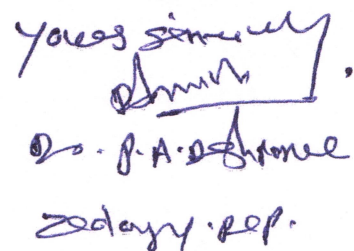 Yours sincerely
Dr. P. A. Deshpande
Zoology. Dep.